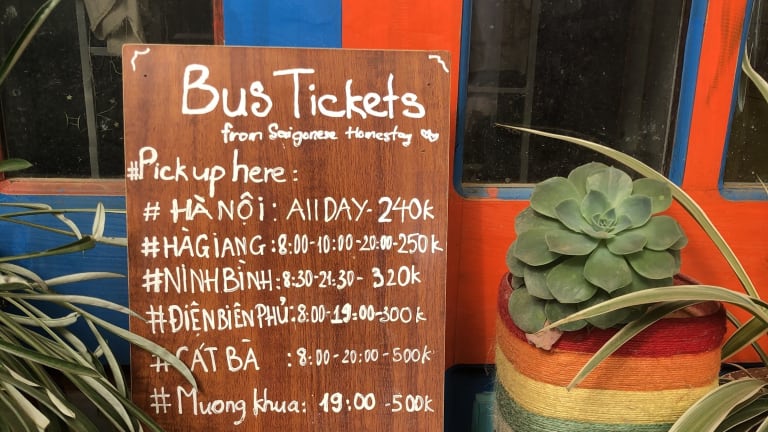 Bus Tickets
from Saigonese Homestay
#Pick up here:
# HÀ NỘI: All DAY- 240k
#HÀ GIANG: 8:00-10:00-20:00-250k
#NINH BÌNH: 8:30-21:30- 320k
#ĐIỆN BIÊN PHỦ: 8:00-19:00-300k
# CÁT BÀ : 8:00-20:00-500k
# Muong khua: 19:00-500k